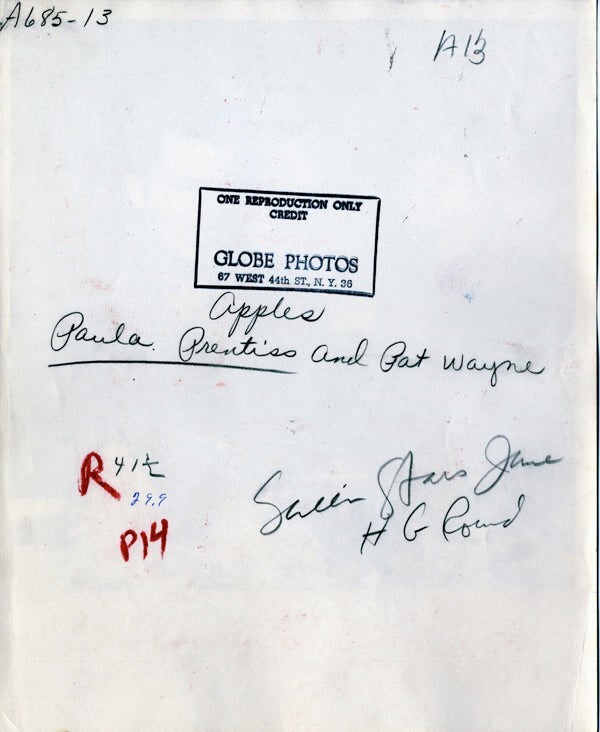 A685-13
A13
ONE REPRODUCTION ONLY
CREDIT
GLOBE PHOTOS
67 WEST 44th ST., N. Y. 36
Apples
Paula. Prentiss and Pat Wayne
R 41½
29.9
P14
Screen Stars June
H G Round